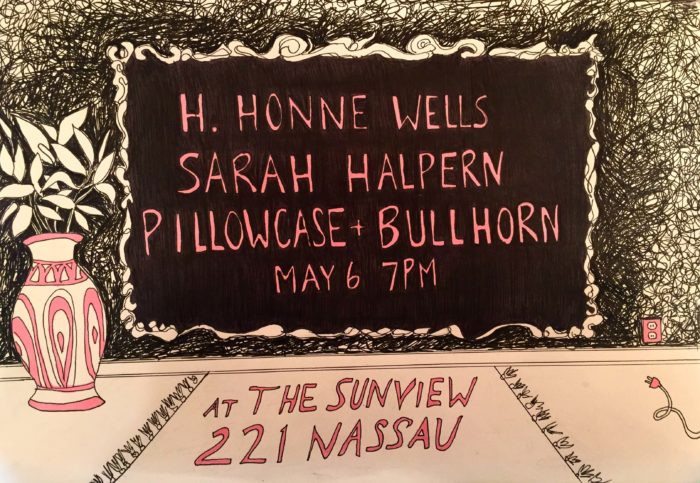 H. HONNE WELLS
SARAH HALPERN
PILLOWCASE + BULLHORN
MAY 6 7PM
AT THE SUNVIEW
221 NASSAU